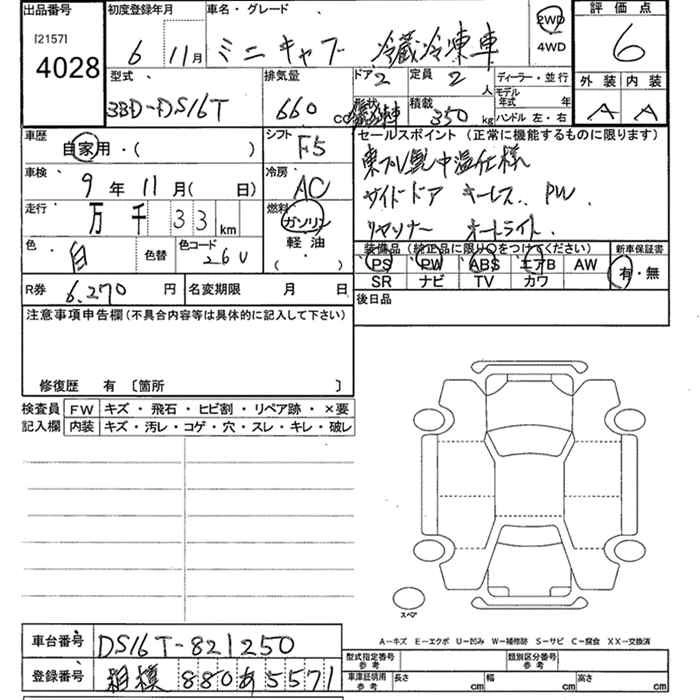 出品番号 初度登録年月 車名・グレード 評価点
[2157] 4028 6 11月 ミニキャブ 冷蔵冷凍車 2WD 4WD 6
型式 排気量 ドア 2 定員 2 人 ディーラー・並行 外装 内装
3BD-DS16T 660 cc 形状 積載 350 kg モデル年式 年 ハンドル 左・右 A A
車歴 自家用・( ) シフト F5 セールスポイント (正常に機能するものに限ります)
車検 9年 11月( 日) 冷房 AC 東プレ製中温仕様
走行 万 千 33 km 燃料 ガソリン 軽油 ・( ) サイドドア キーレス. PW.
リヤソナー オートライト.
色 白 色替 色コード 26U 装備品 (純正品に限り○をつけてください) 新車保証書
PS PW ABS エアB AW 有・無
SR ナビ TV カワ
R券 6,270 円 名変期限 月 日 後日品
注意事項申告欄 (不具合内容等は具体的に記入して下さい)
修復歴 有 〔箇所 〕
検査員 FW キズ・飛石・ヒビ割・リペア跡・×要
記入欄 内装 キズ・汚レ・コゲ・穴・スレ・キレ・破レ
スペア
A−キズ E−エクボ U−凹み W−補修跡 S−サビ C−腐食 XX−交換済
車台番号 DS16T-821250 型式指定番号 参考 類別区分番号 参考
登録番号 相模 880 あ 5571 車庫証明用 参考 長さ cm 幅 cm 高さ cm